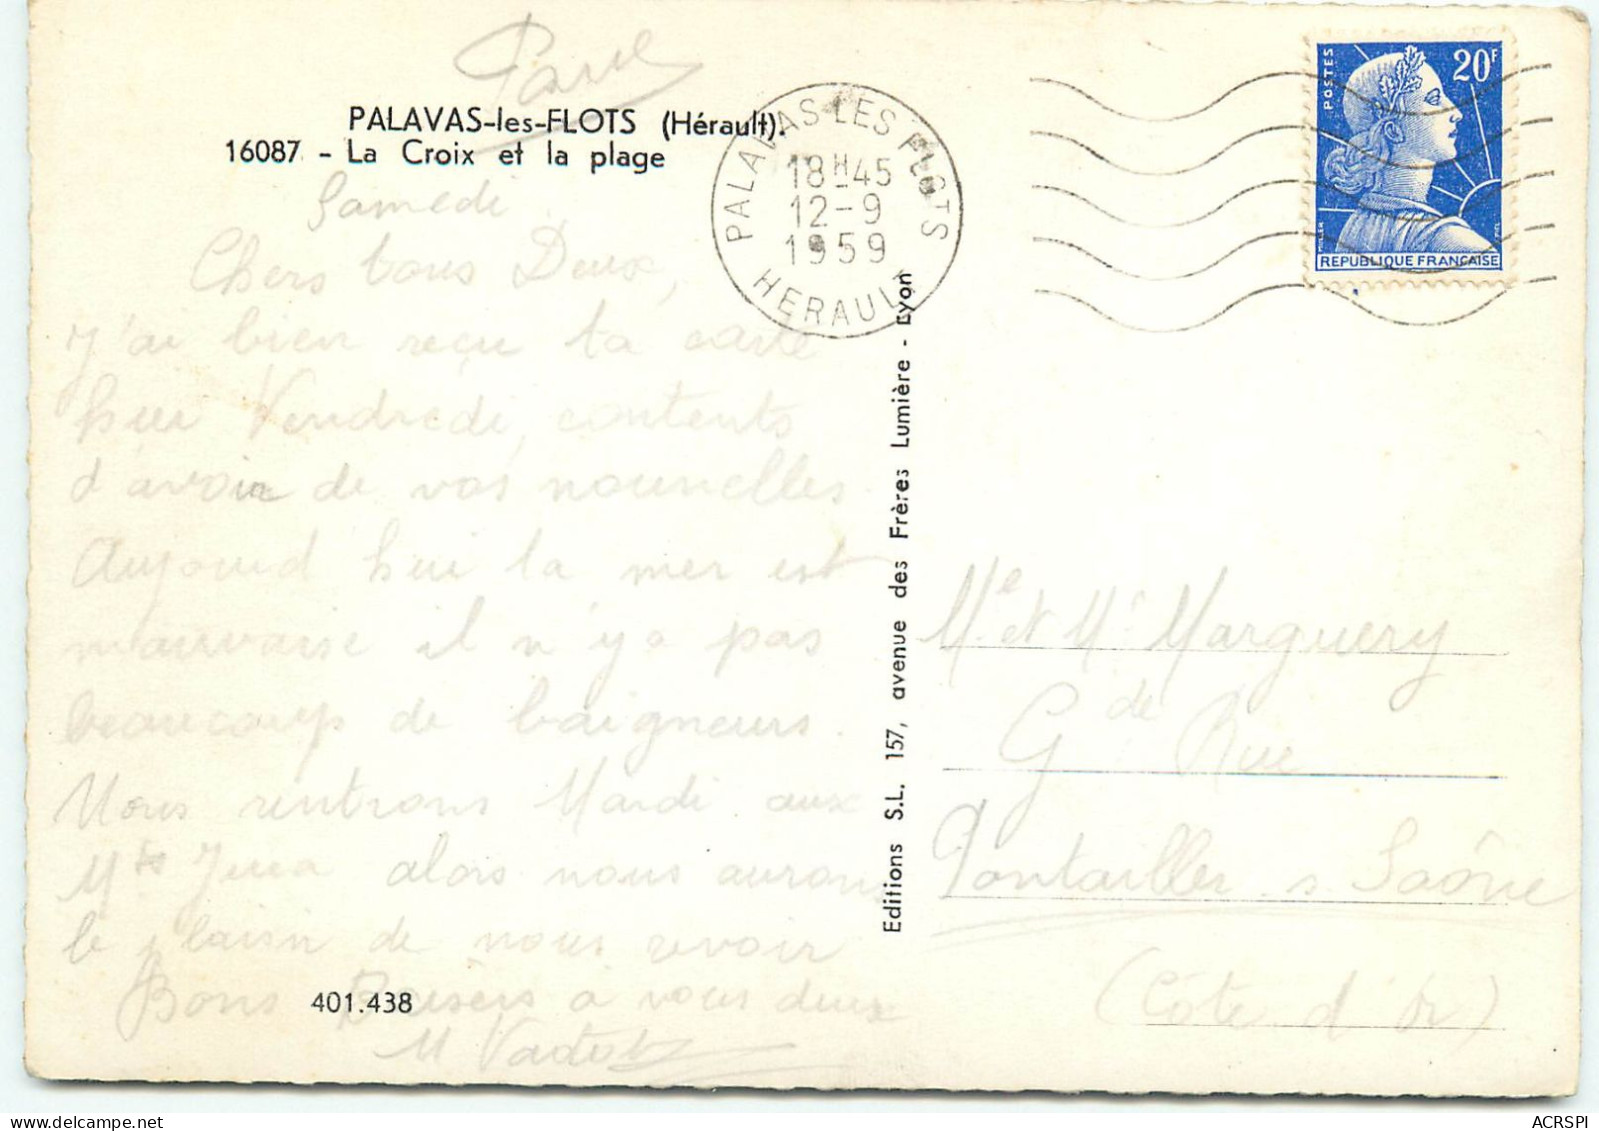 PALAVAS-les-FLOTS (Hérault).
16087 - La Croix et la plage
Samedi
Chers tous Deux,
J'ai bien reçu ta carte
hier Vendredi, contents
d'avoir de vos nouvelles
Aujourd hui la mer est
mauvaise il n'y a pas
beaucoup de baigneurs.
Nous rentrons Mardi aux
alors nous aurons
le plaisir de nous revoir
Bons Baisers a vous deux
M
401.438
Editions S.L. 157, avenue des Frères Lumière - Lyon
PALAVAS-LES FLOTS
18H45
12-9
1959
HERAULT
POSTES
20F
REPUBLIQUE FRANÇAISE
Me et Mr Marguery
Gde Rue
Pontailler s Saône
(Côte d'Or)
ACRSPI